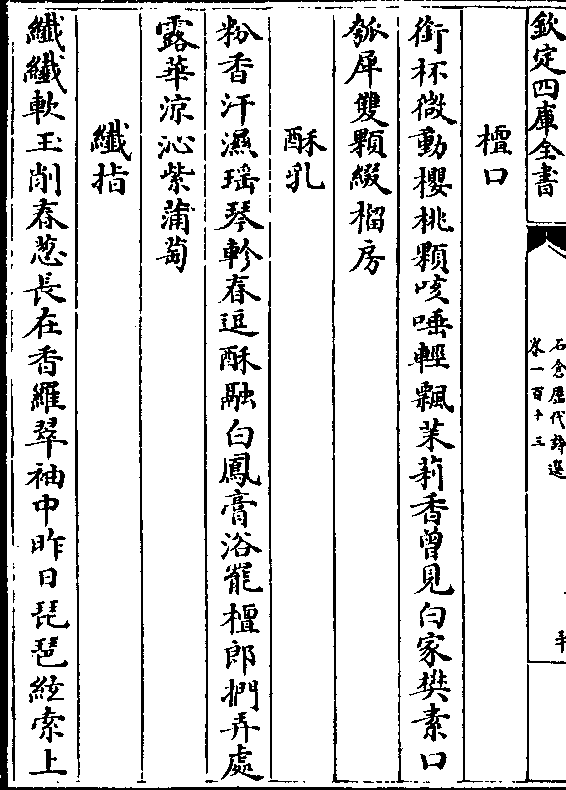 欽定四庫全書
石倉歷代詩選
卷一百十三
檀口
銜杯微動櫻桃顆咳唾輕飄茉莉香曾見白家樊素口
瓠犀雙顆綴榴房
酥乳
粉香汗濕瑶琴軫春逗酥融白鳳膏浴罷檀郎捫弄處
露華涼沁紫葡萄
纖指
纖纖軟玉削春葱長在香羅翠袖中昨日琵琶絃索上